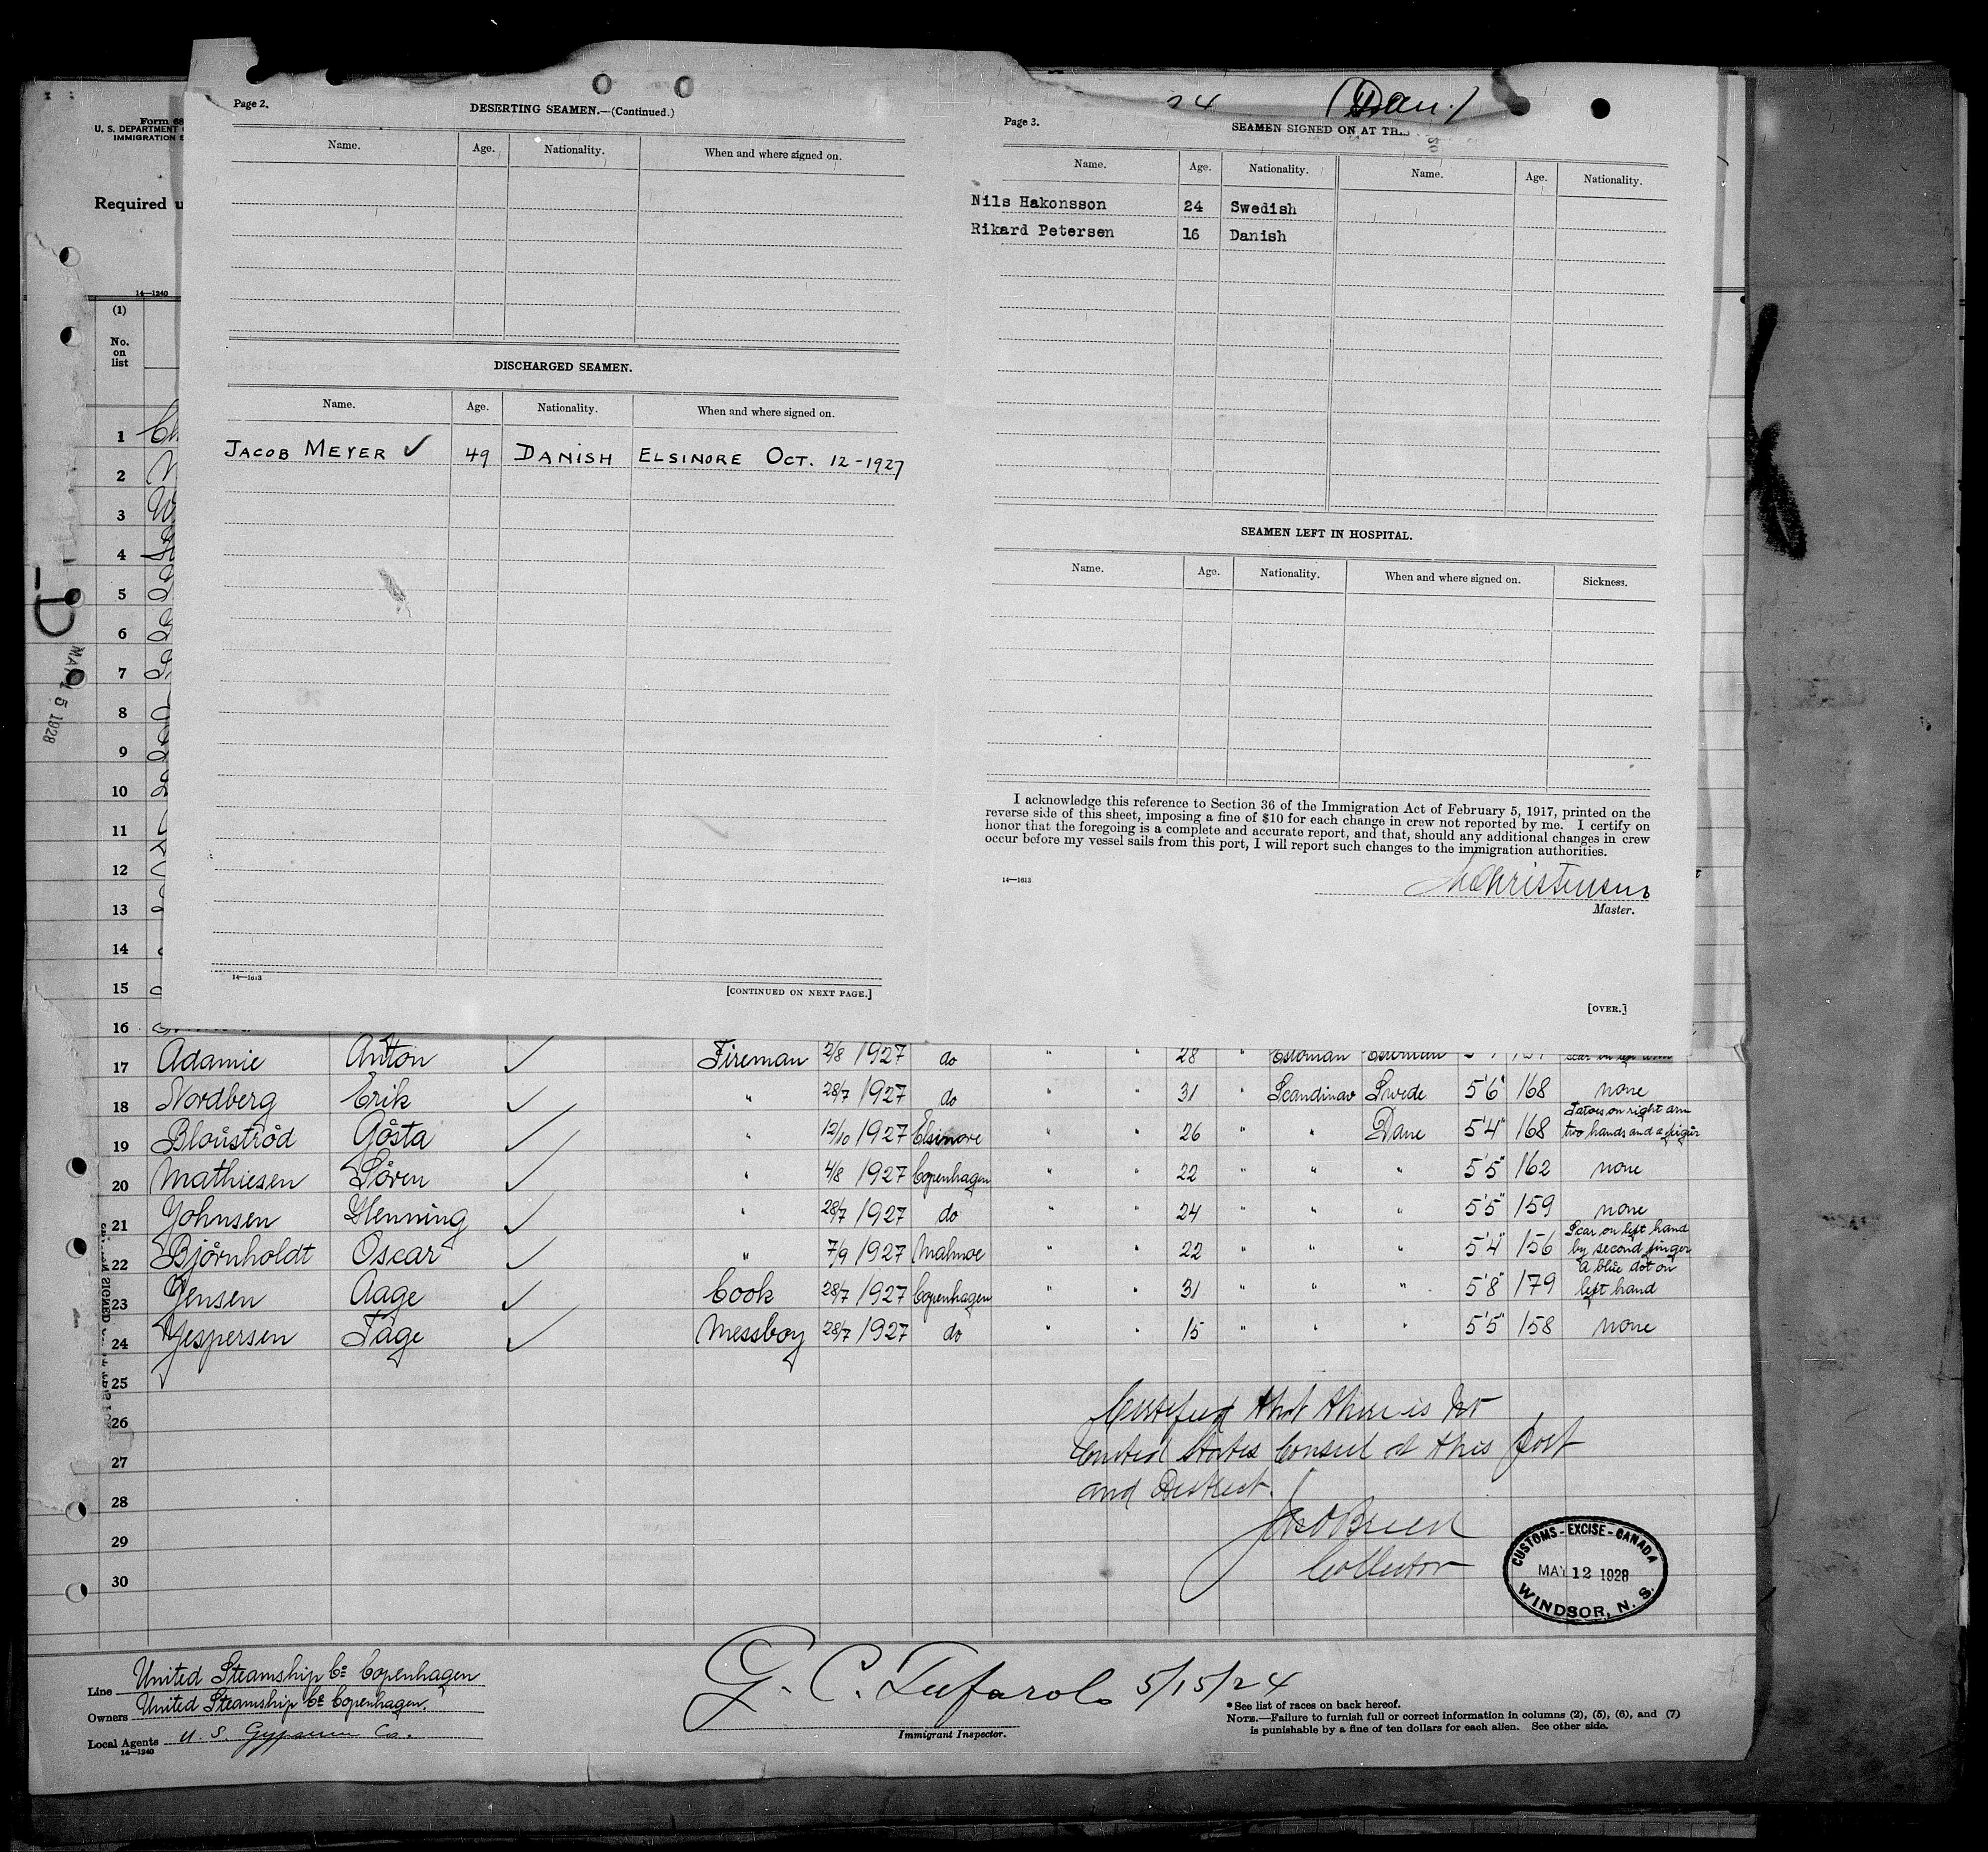 Form 68
U. S. DEPARTMENT
IMMIGRATION S
Required u
14—1240
(1)
No.
on
list
Page 2.
DESERTING SEAMEN.—(Continued.)
Name. Age. Nationality. When and where signed on.
DISCHARGED SEAMEN.
Name. Age. Nationality. When and where signed on.
JACOB MEYER ✓ 49 DANISH ELSINORE OCT. 12-1927
14—1613
[CONTINUED ON NEXT PAGE.]
24 (Dan.)
Page 3.
SEAMEN SIGNED ON AT TH
Name. Age. Nationality. Name. Age. Nationality.
Nils Hakonsson 24 Swedish
Rikard Petersen 16 Danish
SEAMEN LEFT IN HOSPITAL.
Name. Age. Nationality. When and where signed on. Sickness.
I acknowledge this reference to Section 36 of the Immigration Act of February 5, 1917, printed on the
reverse side of this sheet, imposing a fine of $10 for each change in crew not reported by me. I certify on
honor that the foregoing is a complete and accurate report, and that, should any additional changes in crew
occur before my vessel sails from this port, I will report such changes to the immigration authorities.
14—1613
Christensen
Master.
[OVER.]
D-
MAY 15 1928
1
2
3
4
5
6
7
8
9
10
11
12
13
14
15
16
17 Adamie Anton ✓ Fireman 2/8 1927 do " " 28 " Estonian Estonian scar on left arm
18 Nordberg Erik ✓ " 28/7 1927 do " " 31 " Scandinav Swede 5'6" 168 none
19 Bloüströd Gösta ✓ " 12/10 1927 Elsinore " " 26 " " Dane 5'4" 168 Tatoes on right arm
two hands and a figür
20 Mathiesen Sören ✓ " 4/8 1927 Copenhagen " " 22 " " " 5'5" 162 none
21 Johnsen Henning ✓ " 28/7 1927 do " " 24 " " " 5'5" 159 none
22 Björnholdt Oscar ✓ " 7/9 1927 Malmoe " " 22 " " " 5'4" 156 Scar on left hand
by second finger
23 Jensen Aage ✓ Cook 28/7 1927 Copenhagen " " 31 " " " 5'8" 179 A blüe dot on
left hand
24 Jespersen Tage ✓ Messboy 28/7 1927 do " " 15 " " " 5'5" 158 none
25
26
27
28
29
30
Certified that there is no
United States Consul at this Port
and District.
O'Brien
Collector
CUSTOMS - EXCISE - CANADA
MAY 12 1928
WINDSOR, N. S.
Line United Steamship Co Copenhagen
Owners United Steamship Co Copenhagen.
Local Agents U. S. Gypsum Co.
14—1240
G. C. Tufarolo 5/15/24
Immigrant Inspector.
* See list of races on back hereof.
NOTE.—Failure to furnish full or correct information in columns (2), (5), (6), and (7)
is punishable by a fine of ten dollars for each alien. See other side.